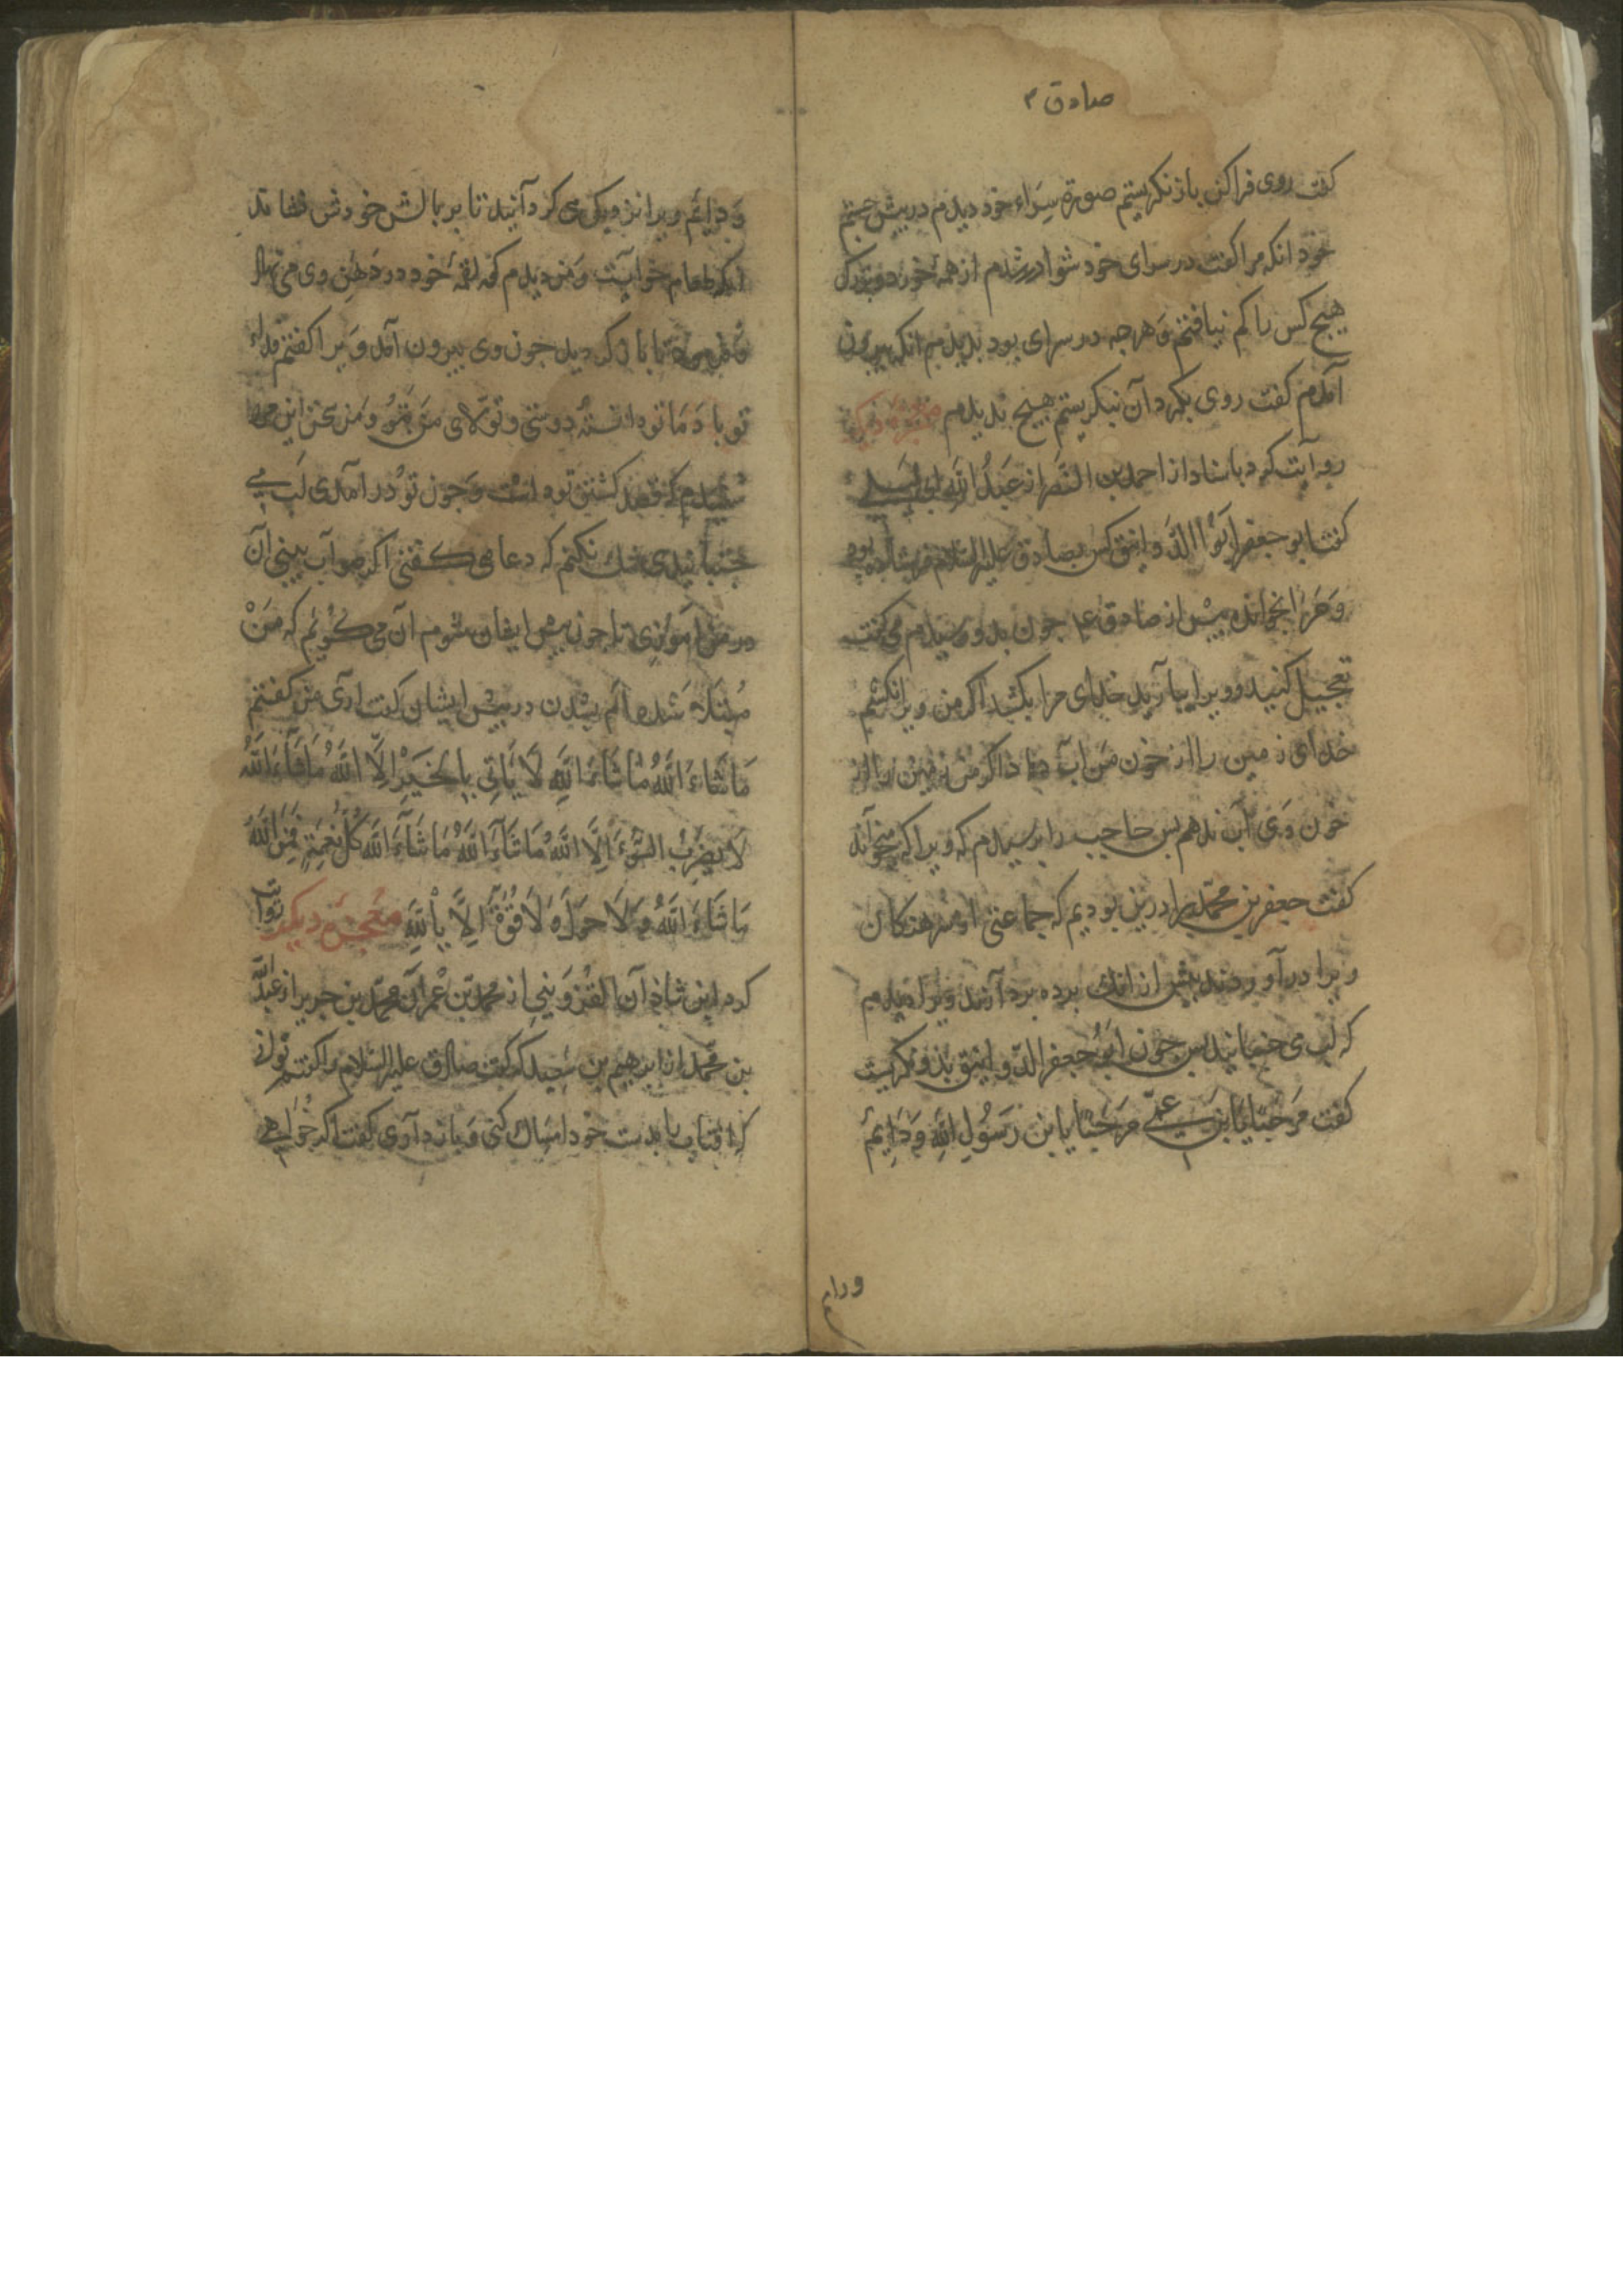 صادق ۴
كفت روی فراكن باز نكرستم صورة سراء خود ديدم در پيش چشم
خود انكه مرا كفت در سرای خود شو در شدم از همهٔ خورد و بزرك
هيچ كس را كم نيافتم و هرچه در سرای بود بديدم انكه بيرون
آمدم كفت روی بكرد آن نيكريستم هيچ نديدم معجزه ديكر
روايت كرد باسناد از احمد بن النضر از عبد الله
كفت ابو جعفر ابو الدوانيق كس بصادق عليه السلام فرستاده بود
و مرا بخوانده پيش از صادق ع جون بدو رسيدم می كفت
تعجيل كنيد و ويرا بيآريد خدای مرا بكشد اكر من ويرا نكشم
خدای زمين را از خون من آب دهاد اكر من زمين را از
خون وی آب ندهم پس حاجب را پرسيدم كه ويرا كه ميخوآند
كفت جعفر بن محمد را درين بوديم كه جماعتی او سرهنكان
ويرا در آوردند پيش از انك پرده بردآرند ويرا ديدم
كه لب می جنبانيد پس جون ابو جعفر الدوانيق بذو نكريست
كفت مرحبا يا بن عمی مرحبا يا بن رسول الله و دايم
ودايم
و دايم ويرا نزديك می كردآنيد تا بر بالش خودش نشاند
انكه طعام خواست و من ديدم كه لقمهٔ خود در دهن وی می نهاد
كرديد جون وی بيرون آمد ويرا كفتم
تو با و ما تو دانسته دوستی و تولای من بتو و من سخن اين
شنيدم كه قصد كشتن تو داشت و جون تو در آمدی لب می
جنبانيدی شك نكنم كه دعا می كفتی اكر صوآب بينی آن
در من آموزی تا جون پيش ايشان شوم آن می كويم كه من
مبتلا شده ام بشدن در پيش ايشان كفت آری من كفتم
ما شاء الله ما شاء الله لا ياتی بالخير الا الله ما شاء الله
لا يصرف السوء الا الله ما شاء الله ما شاء الله كل نعمة فمن الله
ما شاء الله و لا حول و لا قوة الا بالله معجزهٔ ديكر روا
كرد ابن شاذآن القزوينی از محمد بن عمرآن محمد بن جرير از عبد الله
بن محمد از ابرهيم بن سعيد كه كفت صادق عليه السلام را كفتم توانی
كه آفتاب را بدست خود امساك كنی و باز دآری كفت اكر خواهی